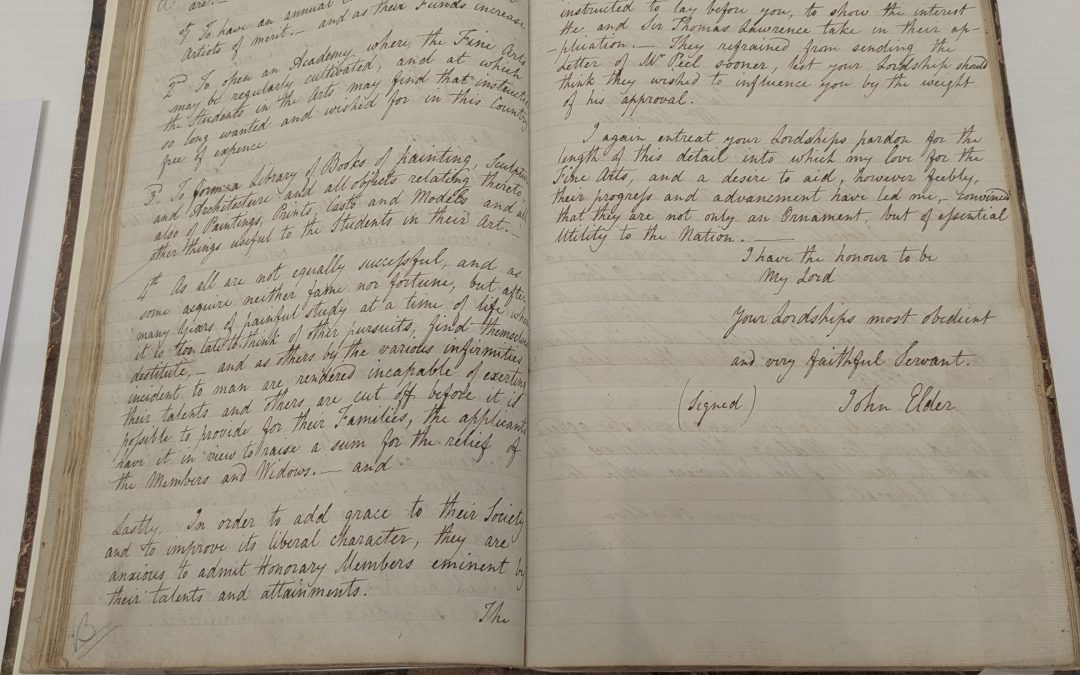 are.
1st To have an annual
Artists of merit. — and as their Funds increase
2d To open an Academy where the Fine Arts
may be regularly cultivated, and at which
the Students in the Arts may find that instruction
so long wanted and wished for in this Country
free of expence
3d To form a Library of Books of painting, Sculpture
and Architecture and all objects relating thereto;
also of Paintings, Prints, Casts and Models and all
other things useful to the Students in their Art. —
4th As all are not equally successful, and as
some acquire neither fame nor fortune, but after
many years of painful study at a time of life when
it is too late to think of other pursuits, find themselves
destitute, — and as others by the various infirmities
incident to man are rendered incapable of exerting
their talents and others are cut off before it is
possible to provide for their Families, the applicants
have it in view to raise a sum for the relief of
the Members and Widows. — and
Lastly, In order to add grace to their Society
and to improve its liberal character, they are
anxious to admit Honorary Members eminent by
their talents and attainments.
The
B
instructed to lay before you, to show the interest
He and Sir Thomas Lawrence take in their ap-
-plication. — They refrained from sending the
Letter of Mr Peel sooner, lest your Lordship should
think they wished to influence you by the weight
of his approval.
I again entreat your Lordships pardon for the
length of this detail into which my love for the
Fine Arts, and a desire to aid, however feebly,
their progress and advancement have led me, — convinced
that they are not only an Ornament, but of essential
Utility to the Nation. —
I have the honour to be
My Lord
Your Lordships most obedient
and very faithful Servant.
(Signed) John Elder